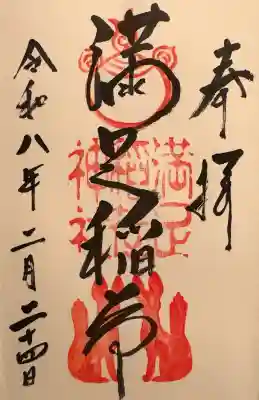 奉拝
満足稲荷
満足稲荷神社
令和八年二月二十四日